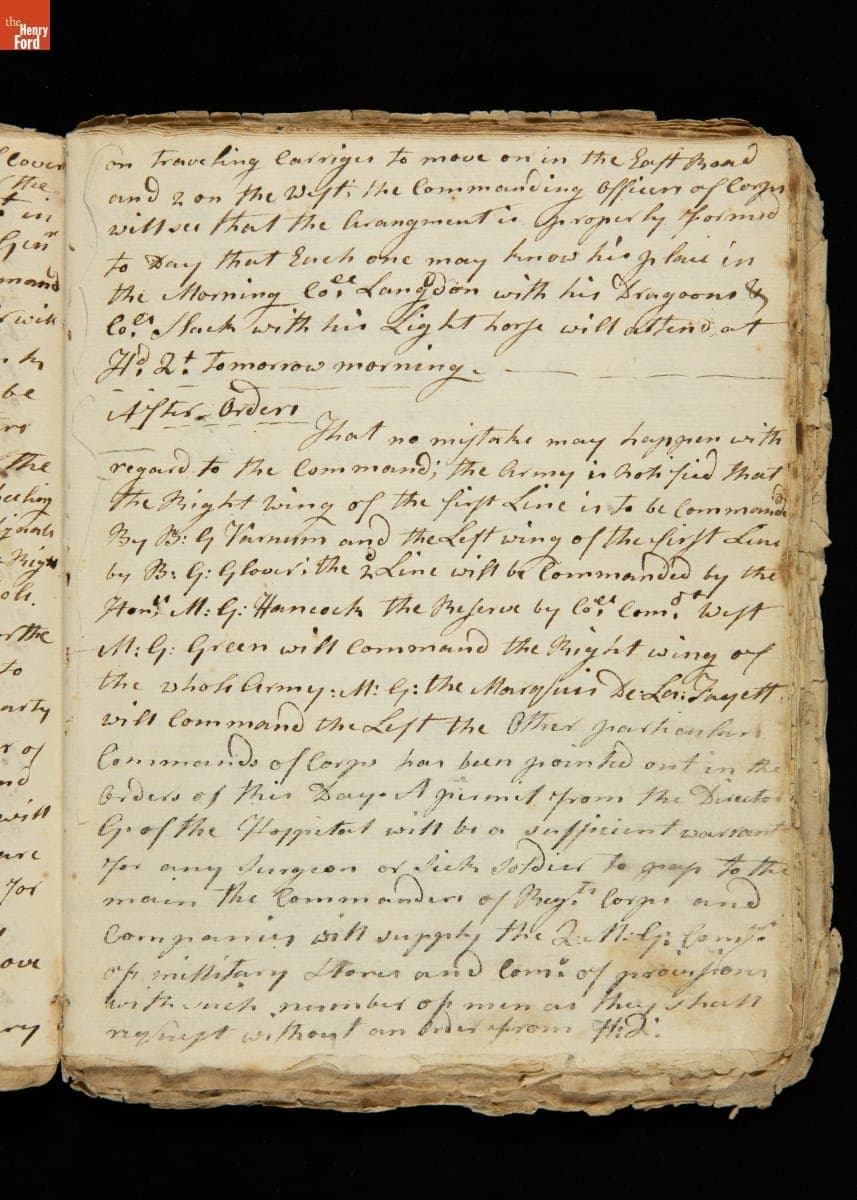 the
Henry
Ford
on traveling Carriges to move on in the East Road
and 2 on the West; the Commanding Officers of Corps
will see that the Arangment is properly formed
to Day that Each one may know his place in
the Morning Coll. Langdon with his Dragoons &
Coll. Slack with his Light horse will attend at
Hd. Qt. tomorrow morning.
After Orders
That no mistake may happen with
regard to the Command; the Army is Notified that
the Right Wing of the first Line is to be Commanded
By B: G Varnum and the Left wing of the first Line
by B: G: Glover: the 2d Line will be Commanded by the
Honl. M: G: Hancock the Reserve by Coll. Comdt. West
M: G: Green will Command the Right wing of
the whole Army: M: G: the Marquis De: La: Fayett
will Command the Left the Other particular
Commands of Corps has been pointed out in the
Orders of this Day. A permit from the Director
G. of the Hospital will be a sufficient warrant
for any Surgeon or Sick Soldier to pass to the
main the Commanders of Regts. Corps and
Companies will supply the Q: M: G: Comy.
of millitary Stores and Com. of provisions
with such number of men as they shall
request without an order from H: Q:
Glover
the
in
Genr
mand
will
be
the
Right
or the
to
arty
r of
nd
will
are
for
ove
ry